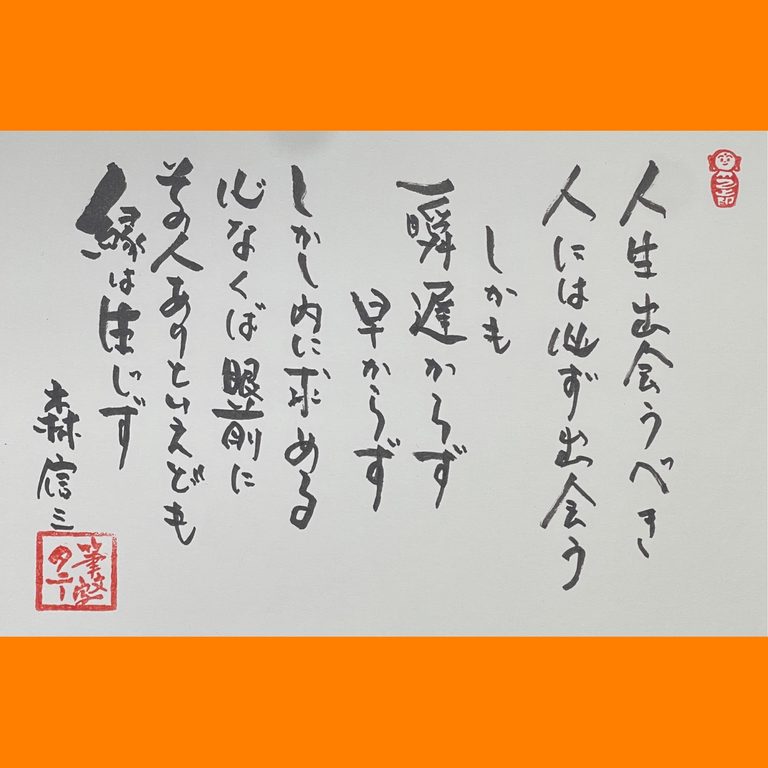 人生出会うべき
人には必ず出会う
しかも
一瞬遅からず
早からず
しかし内に求める
心なくば眼前に
その人ありといえども
縁は生じず
森信三